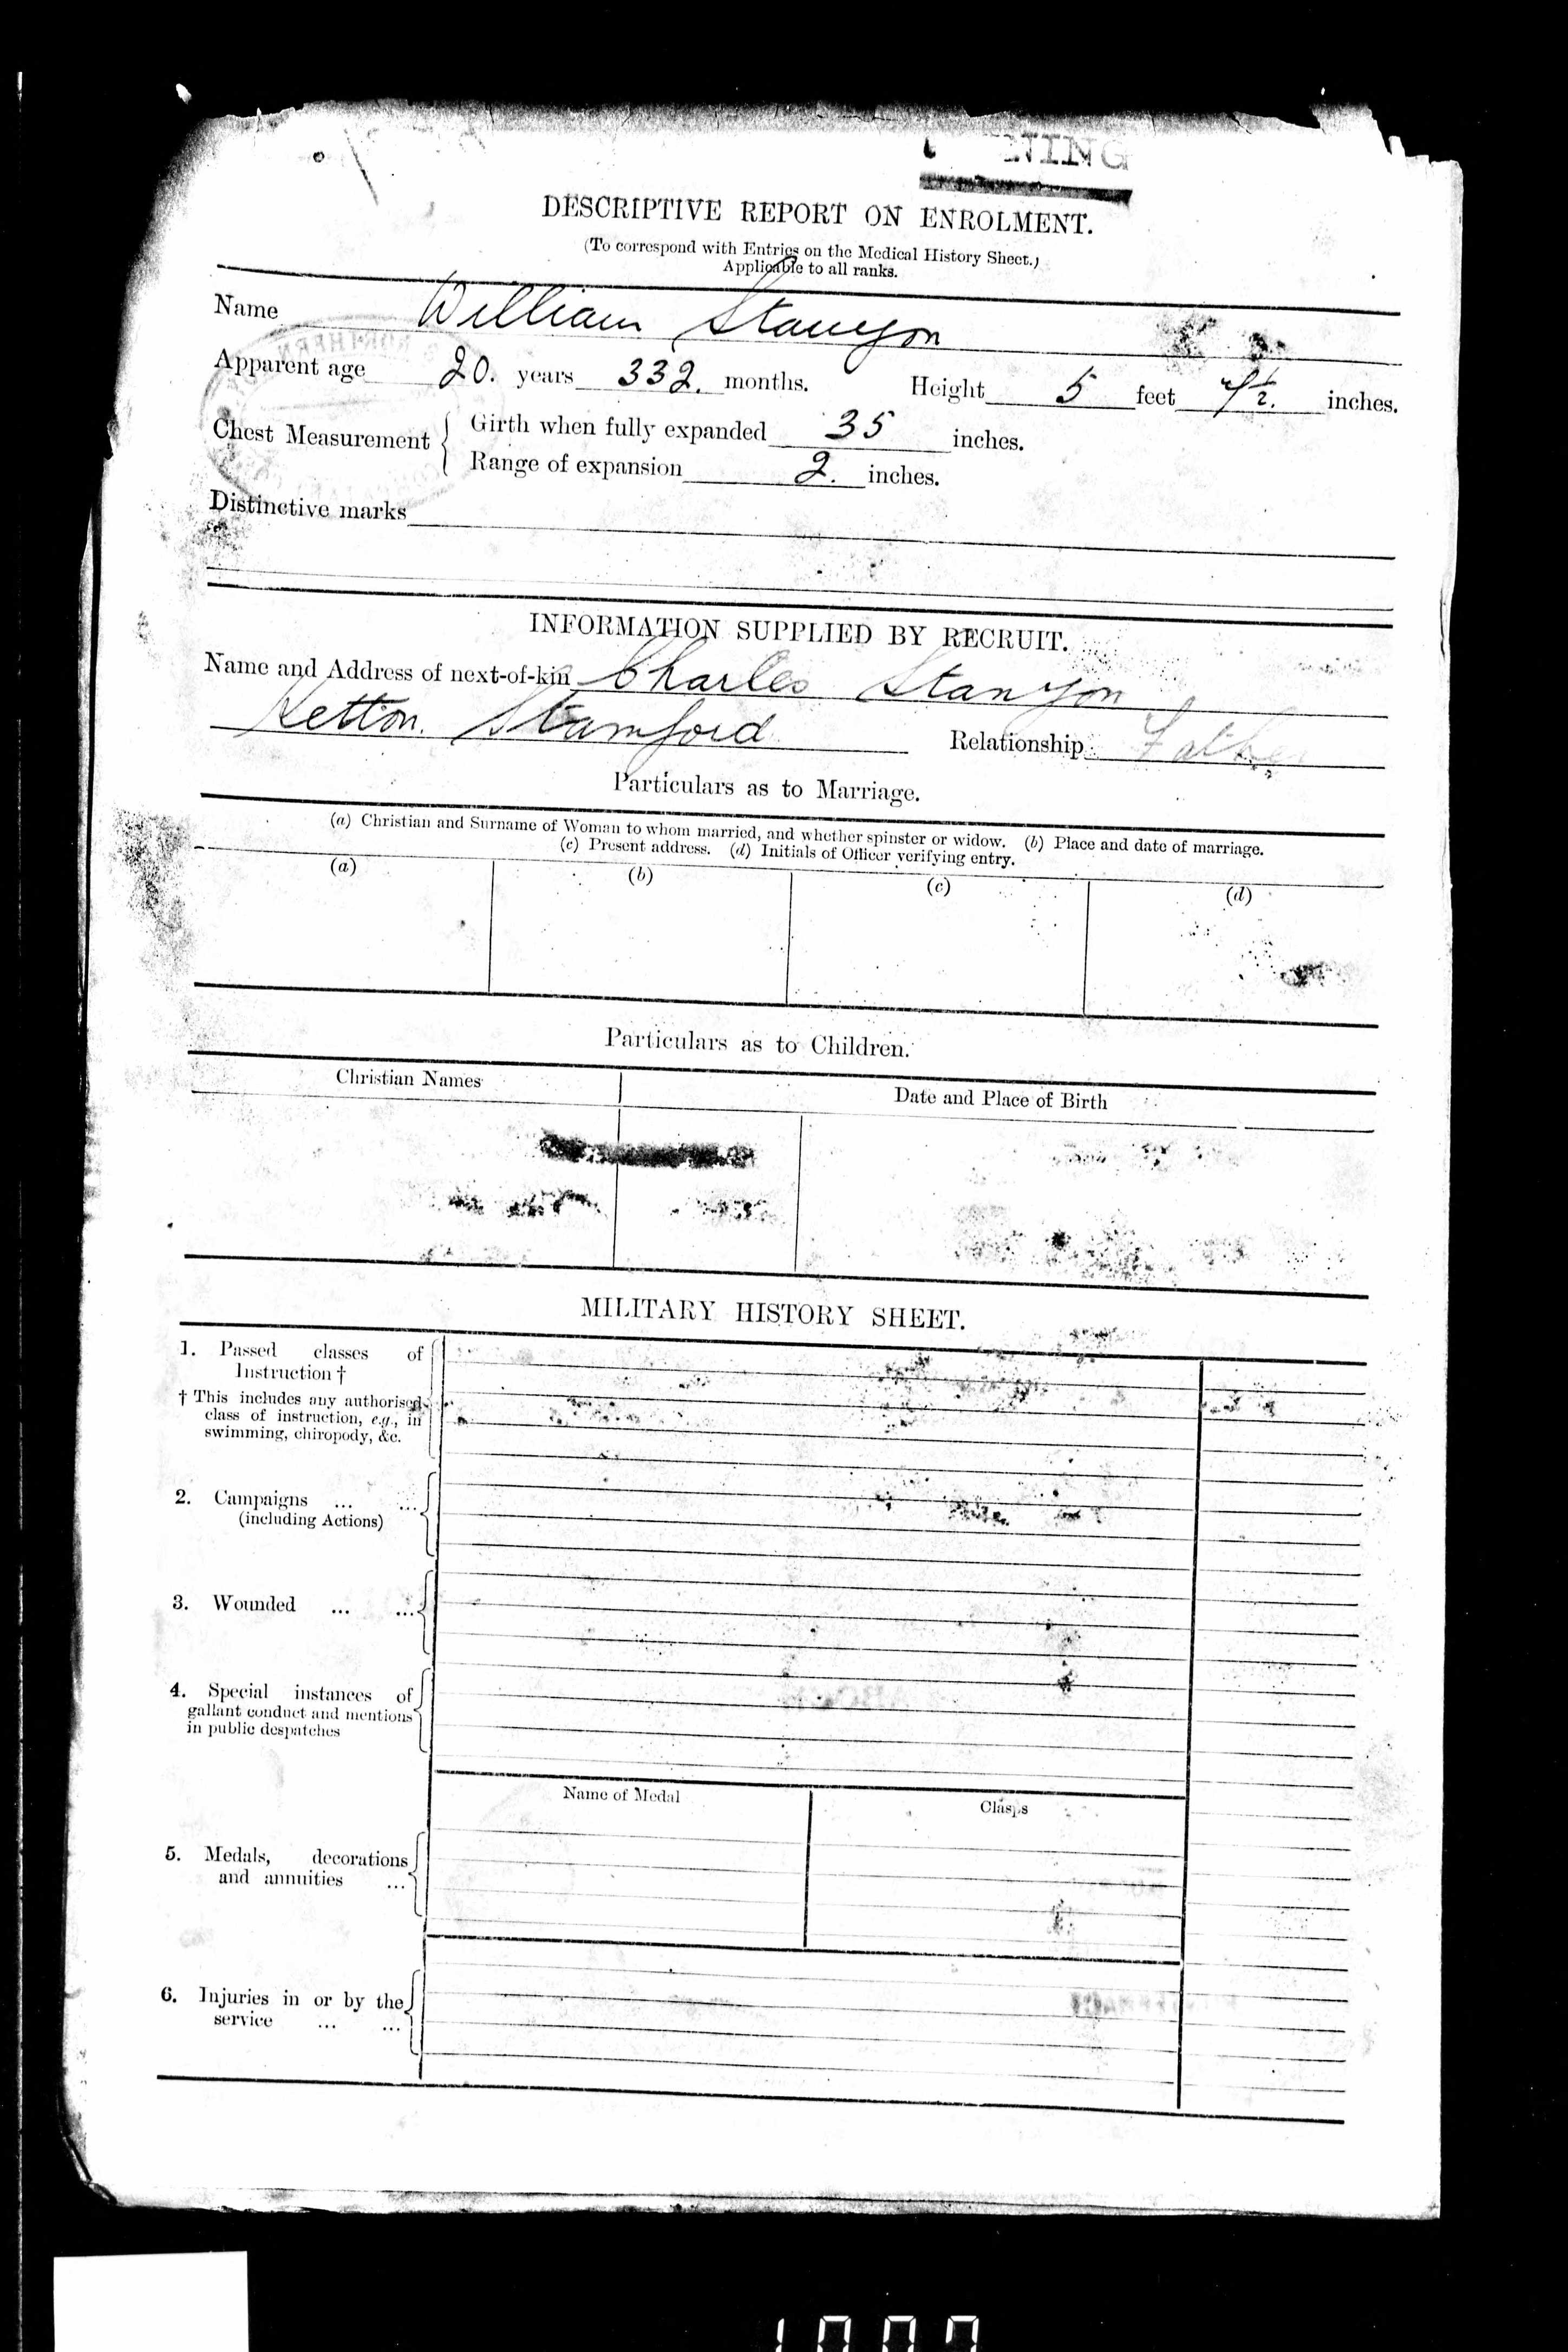 NING
DESCRIPTIVE REPORT ON ENROLMENT.
(To correspond with Entries on the Medical History Sheet.)
Applicable to all ranks.
Name William Stanyon
Apparent age 20. years 332. months. Height 5 feet 7½. inches.
Chest Measurement { Girth when fully expanded 35 inches.
Range of expansion 2. inches.
Distinctive marks
INFORMATION SUPPLIED BY RECRUIT.
Name and Address of next-of-kin Charles Stanyon
Ketton. Stamford Relationship Father
Particulars as to Marriage.
(a) Christian and Surname of Woman to whom married, and whether spinster or widow. (b) Place and date of marriage.
(c) Present address. (d) Initials of Officer verifying entry.
(a) (b) (c) (d)
Particulars as to Children.
Christian Names Date and Place of Birth
MILITARY HISTORY SHEET.
1. Passed classes of
Instruction †
† This includes any authorised
class of instruction, e.g., in
swimming, chiropody, &c.
2. Campaigns ... ...
(including Actions)
3. Wounded ... ...
4. Special instances of
gallant conduct and mentions
in public despatches
Name of Medal Clasps
5. Medals, decorations
and annuities ...
6. Injuries in or by the
service ... ...